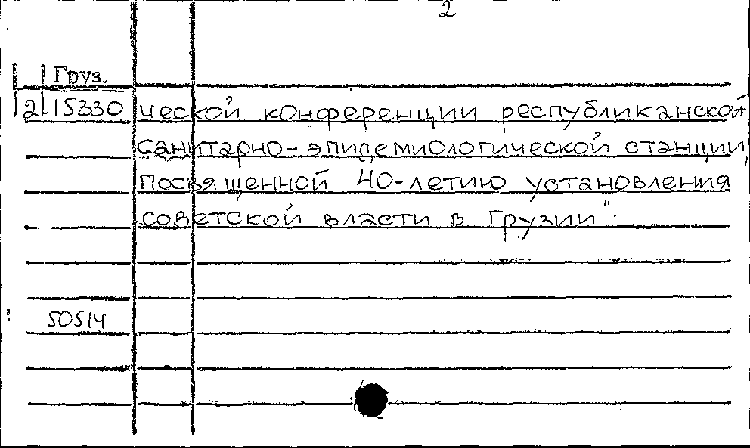 2
Груз.
2 15330 ческой конференции республиканской
санитарно-эпидемиологической станции,
посвященной 40-летию установления
советской власти в Грузии".
50514